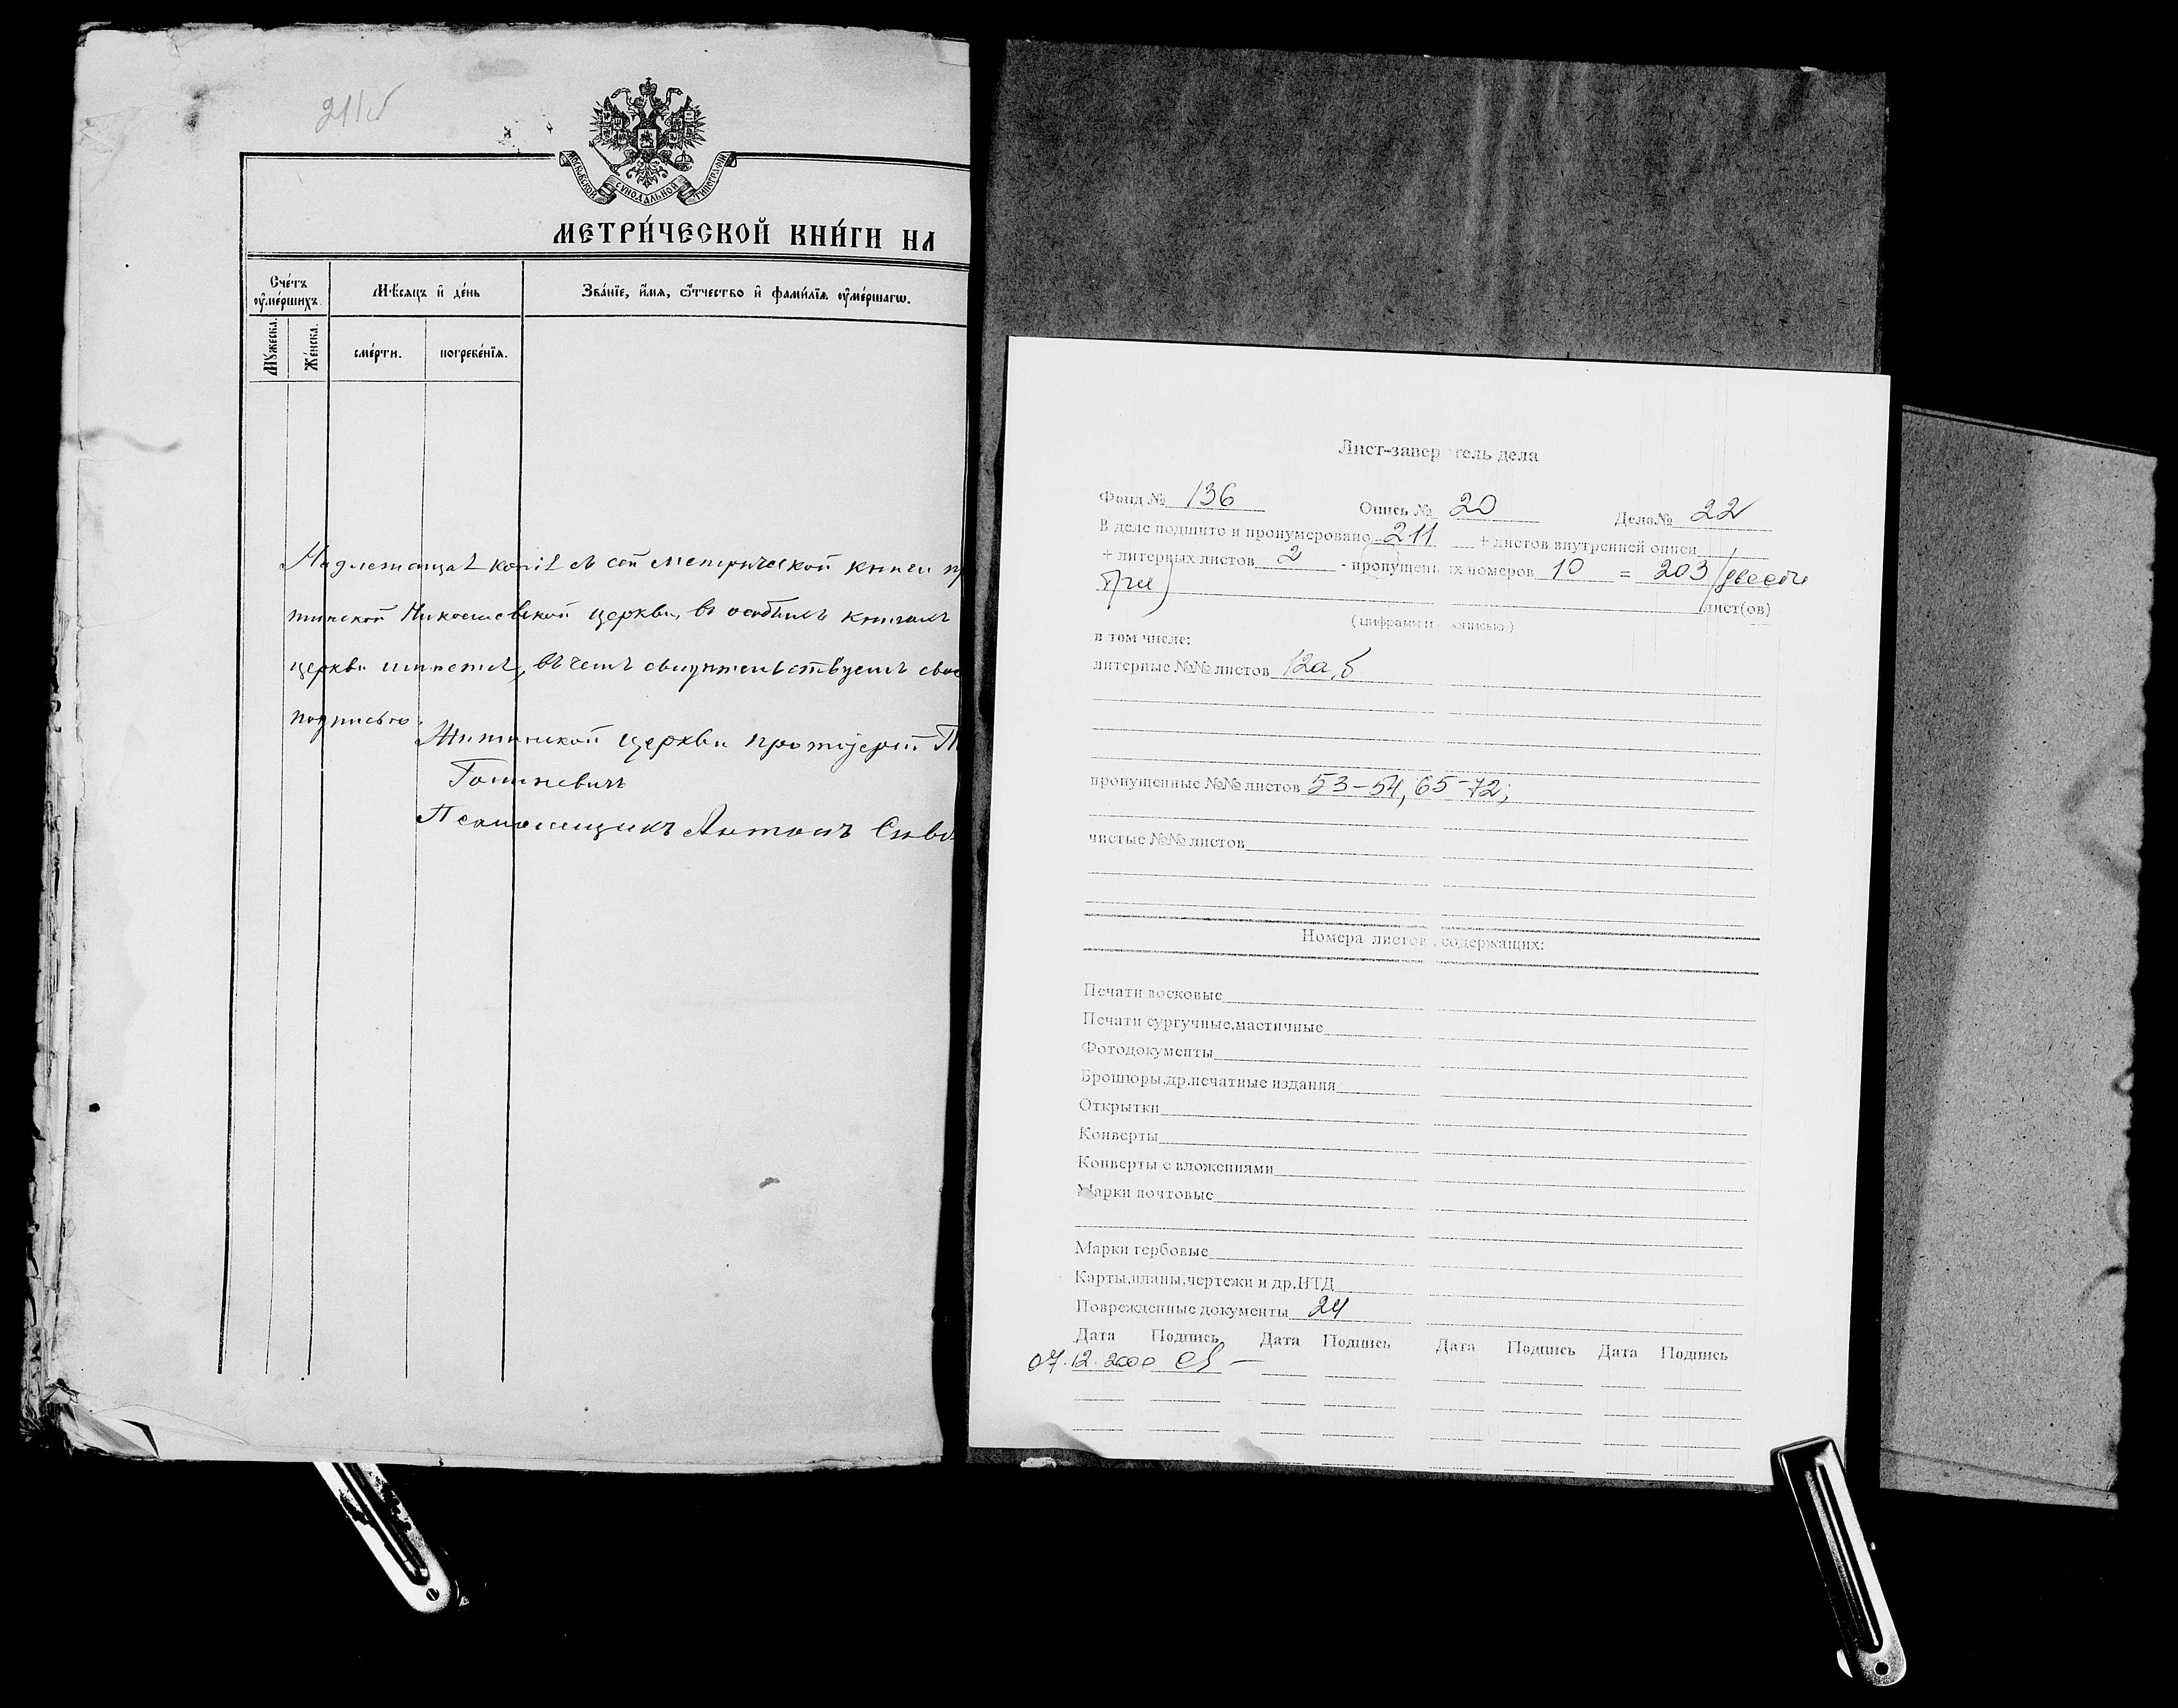 211об
МОСКОВСКОЙ СѴНОДАЛЬНОЙ ТИПОГРАФІИ
МЕТРИ́ЧЕСКОЙ КНИ́ГИ НА
Сче́тъ оу҆ме́ршихъ.
Мѣсяцъ и҆ де́нь
Зва́нїе, и҆́мя, ѻ҆́тчество и҆ фами́лїя оу҆ме́ршагѡ.
Му́жеска.
Же́нска.
сме́рти.
погребе́нїя.
Надлежащая копія съ сей метрической книги
Никольской церкви, въ особыхъ книгахъ
церкви имѣется, въ чемъ свидѣтельствуемъ
подписью.
церкви протоіерей
Псаломщикъ Антонъ
Лист-заверитель дела
Фонд № 136 Опись № 20 Дело№ 22
В деле подшито и пронумеровано 211 + листов внутренней описи
+ литерных листов 2 - пропущенных номеров 10 = 203 (двести
три) лист(ов)
(цифрами и прописью)
в том числе:
литерные №№ листов 12а,б
пропущенные №№ листов 53-54, 65-72;
чистые №№ листов
Номера листов, содержащих:
Печати восковые
Печати сургучные,мастичные
Фотодокументы
Брошюры,др.печатные издания
Открытки
Конверты
Конверты с вложениями
Марки почтовые
Марки гербовые
Карты,планы,чертежи и др.НТД
Поврежденные документы 24
Дата Подпись Дата Подпись Дата Подпись Дата Подпись
07.12.2000